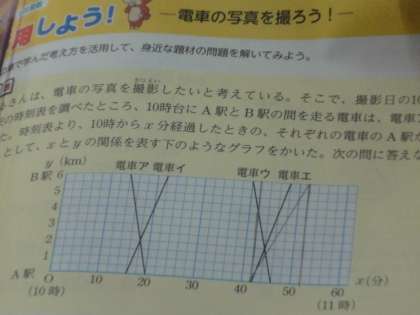 用しよう！
―電車の写真を撮ろう！―
で学んだ考え方を活用して、身近な題材の問題を解いてみよう。
さんは、電車の写真を撮影したいと考えている。そこで、撮影日の10
の時刻表を調べたところ、10時台にA駅とB駅の間を走る電車は、電車ア
た。時刻表より、10時からx分経過したときの、それぞれの電車のA駅か
として、xとyの関係を表す下のようなグラフをかいた。次の問に答えな
y (km)
電車ア 電車イ 電車ウ 電車エ
B駅 6
5
4
3
2
1
A駅 O 10 20 30 40 50 60 x(分)
(10時) (11時)